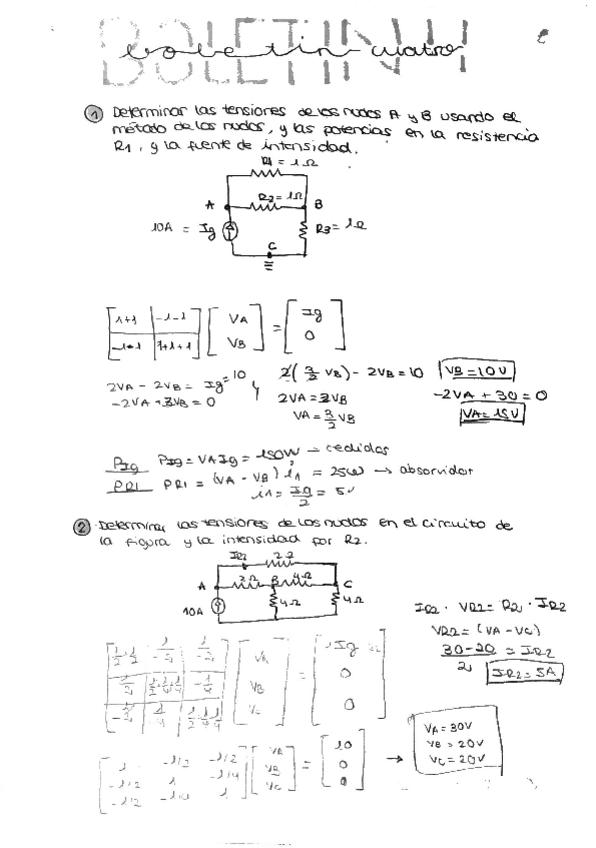 BOLETIN 4
boletin cuatro
① Determinar las tensiones de los nudos A y B usando el
método de los nudos, y las potencias en la resistencia
R1, y la fuente de intensidad.
R1 = 1Ω
A
R2 = 1Ω
B
10A = Ig
R3 = 1Ω
C
1+1 -1-1 VA = Ig
-1-1 1+1+1 VB 0
2VA - 2VB = Ig = 10
-2VA + 3VB = 0
2(3/2 VB) - 2VB = 10
2VA = 3VB
VA = 3/2 VB
VB = 10V
-2VA + 30 = 0
VA = 15V
PIg PIg = VA Ig = 150W → cedidas
PR1 PR1 = (VA - VB) i1 = 25W → absorvidas
i1 = Ig/2 = 5
② Determinar las tensiones de los nudos en el circuito de
la figura y la intensidad por R2.
IR2 2Ω
A 2Ω B 4Ω C
10A 4Ω 4Ω
IR2 · VR2 = R2 · IR2
VR2 = (VA - VC)
30-20/2 = IR2
IR2 = 5A
VA
VB
VC
Ig
0
0
1 -1/2 -1/2 VA = 10
-1/2 1 -1/4 VB 0
-1/2 -1/4 1 VC 0
→
VA = 30V
VB = 20V
VC = 20V